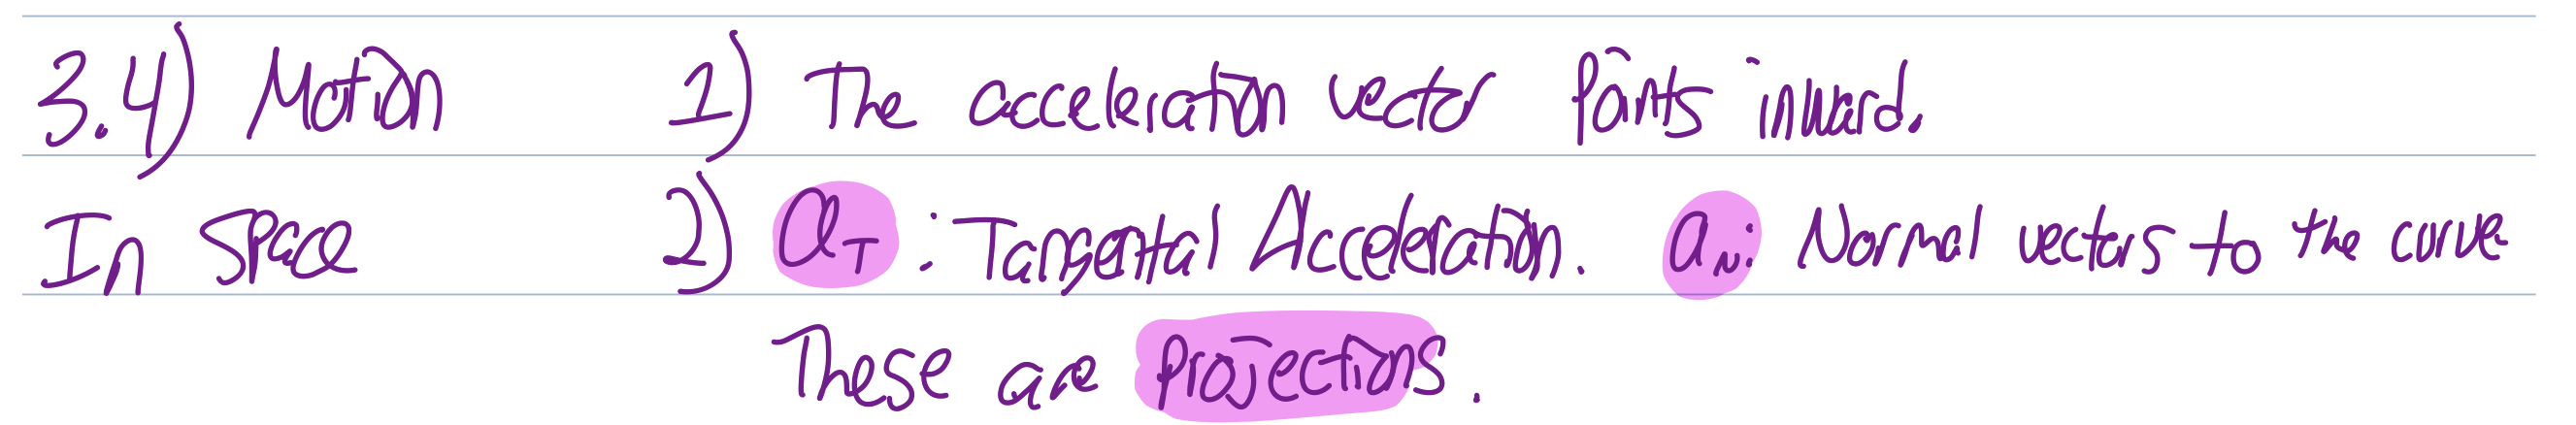 3.4) Motion 1) The acceleration vector Points inward.
In Space 2) a_T : Tangental Acceleration. a_N: Normal vectors to the curve
These are Projections.